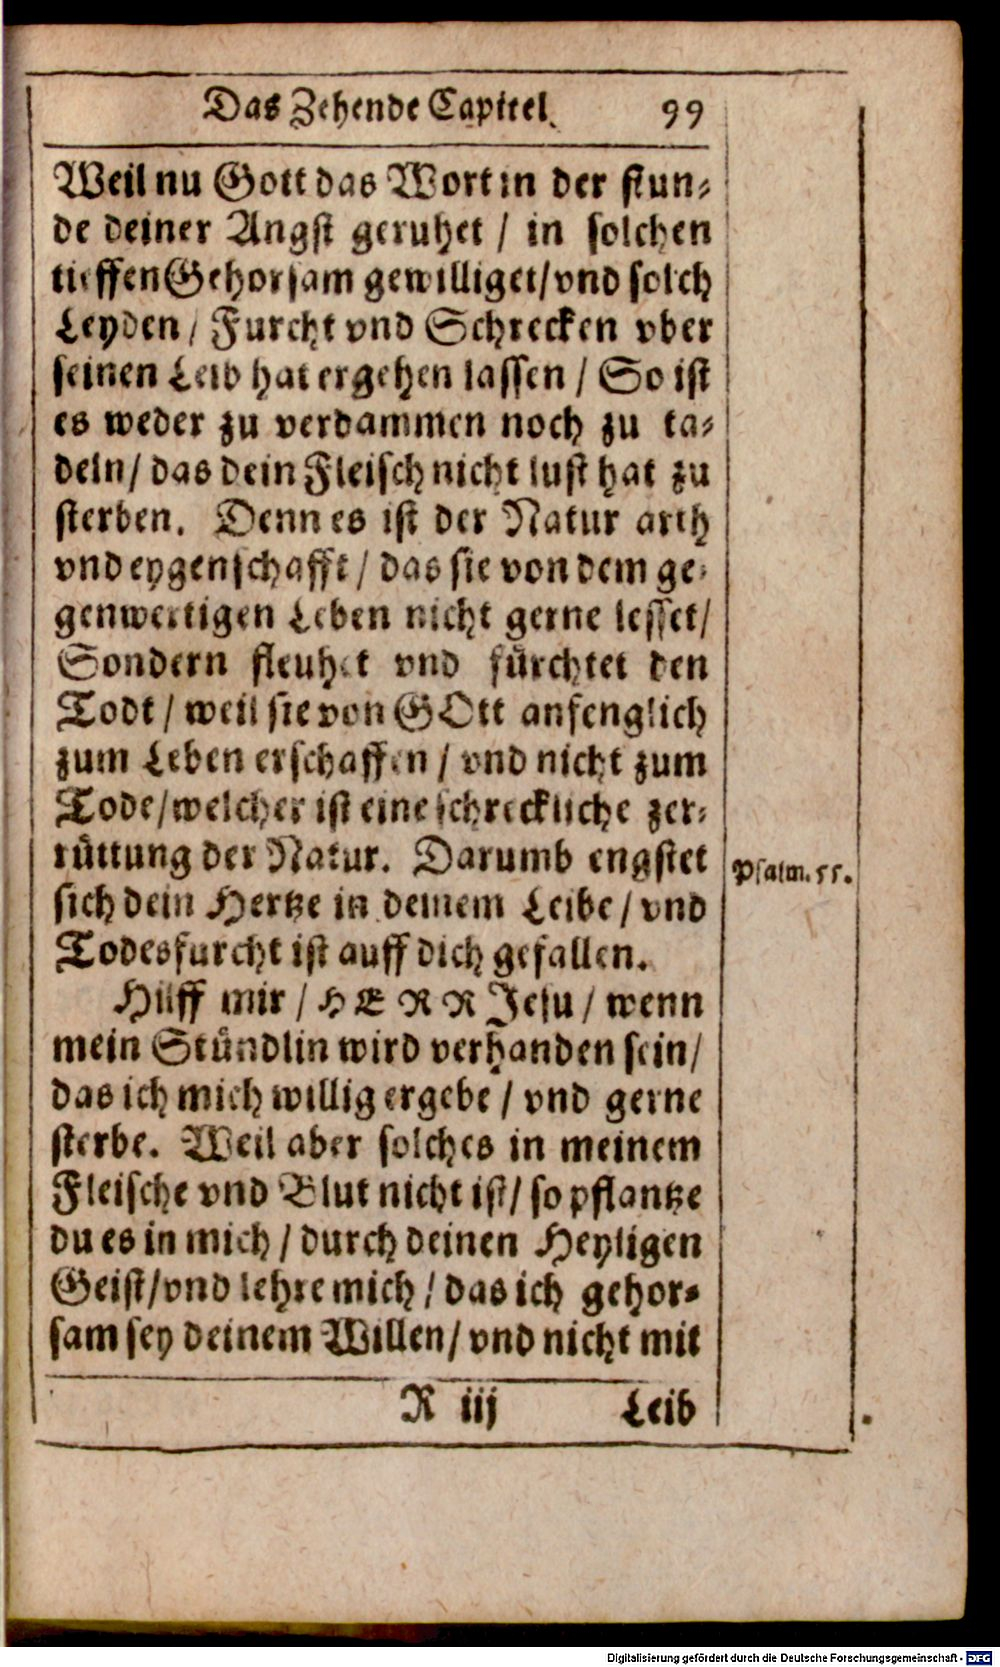 Das Zehende Capitel. 99
Weil nu Gott das Wort in der stun⸗
de deiner Angst geruhet / in solchen
tieffen Gehorsam gewilliget / vnd solch
Leyden / Furcht vnd Schrecken vber
seinen Leib hat ergehen lassen / So ist
es weder zu verdammen noch zu ta⸗
deln / das dein Fleisch nicht lust hat zu
sterben. Denn es ist der Natur arth
vnd eygenschafft / das sie von dem ge⸗
genwertigen Leben nicht gerne lesset /
Sondern fleuhet vnd fürchtet den
Todt / weil sie von GOtt anfenglich
zum Leben erschaffen / vnd nicht zum
Tode / welcher ist eine schreckliche zer⸗
rüttung der Natur. Darumb engstet
sich dein Hertze in deinem Leibe / vnd
Todesfurcht ist auff dich gefallen.
Psalm. 55.
Hilff mir / HERR Jesu / wenn
mein Stündlin wird verhanden sein /
das ich mich willig ergebe / vnd gerne
sterbe. Weil aber solches in meinem
Fleische vnd Blut nicht ist / so pflantze
du es in mich / durch deinen Heyligen
Geist / vnd lehre mich / das ich gehor⸗
sam sey deinem Willen / vnd nicht mit
N iij Leib
Digitalisierung gefördert durch die Deutsche Forschungsgemeinschaft - DFG